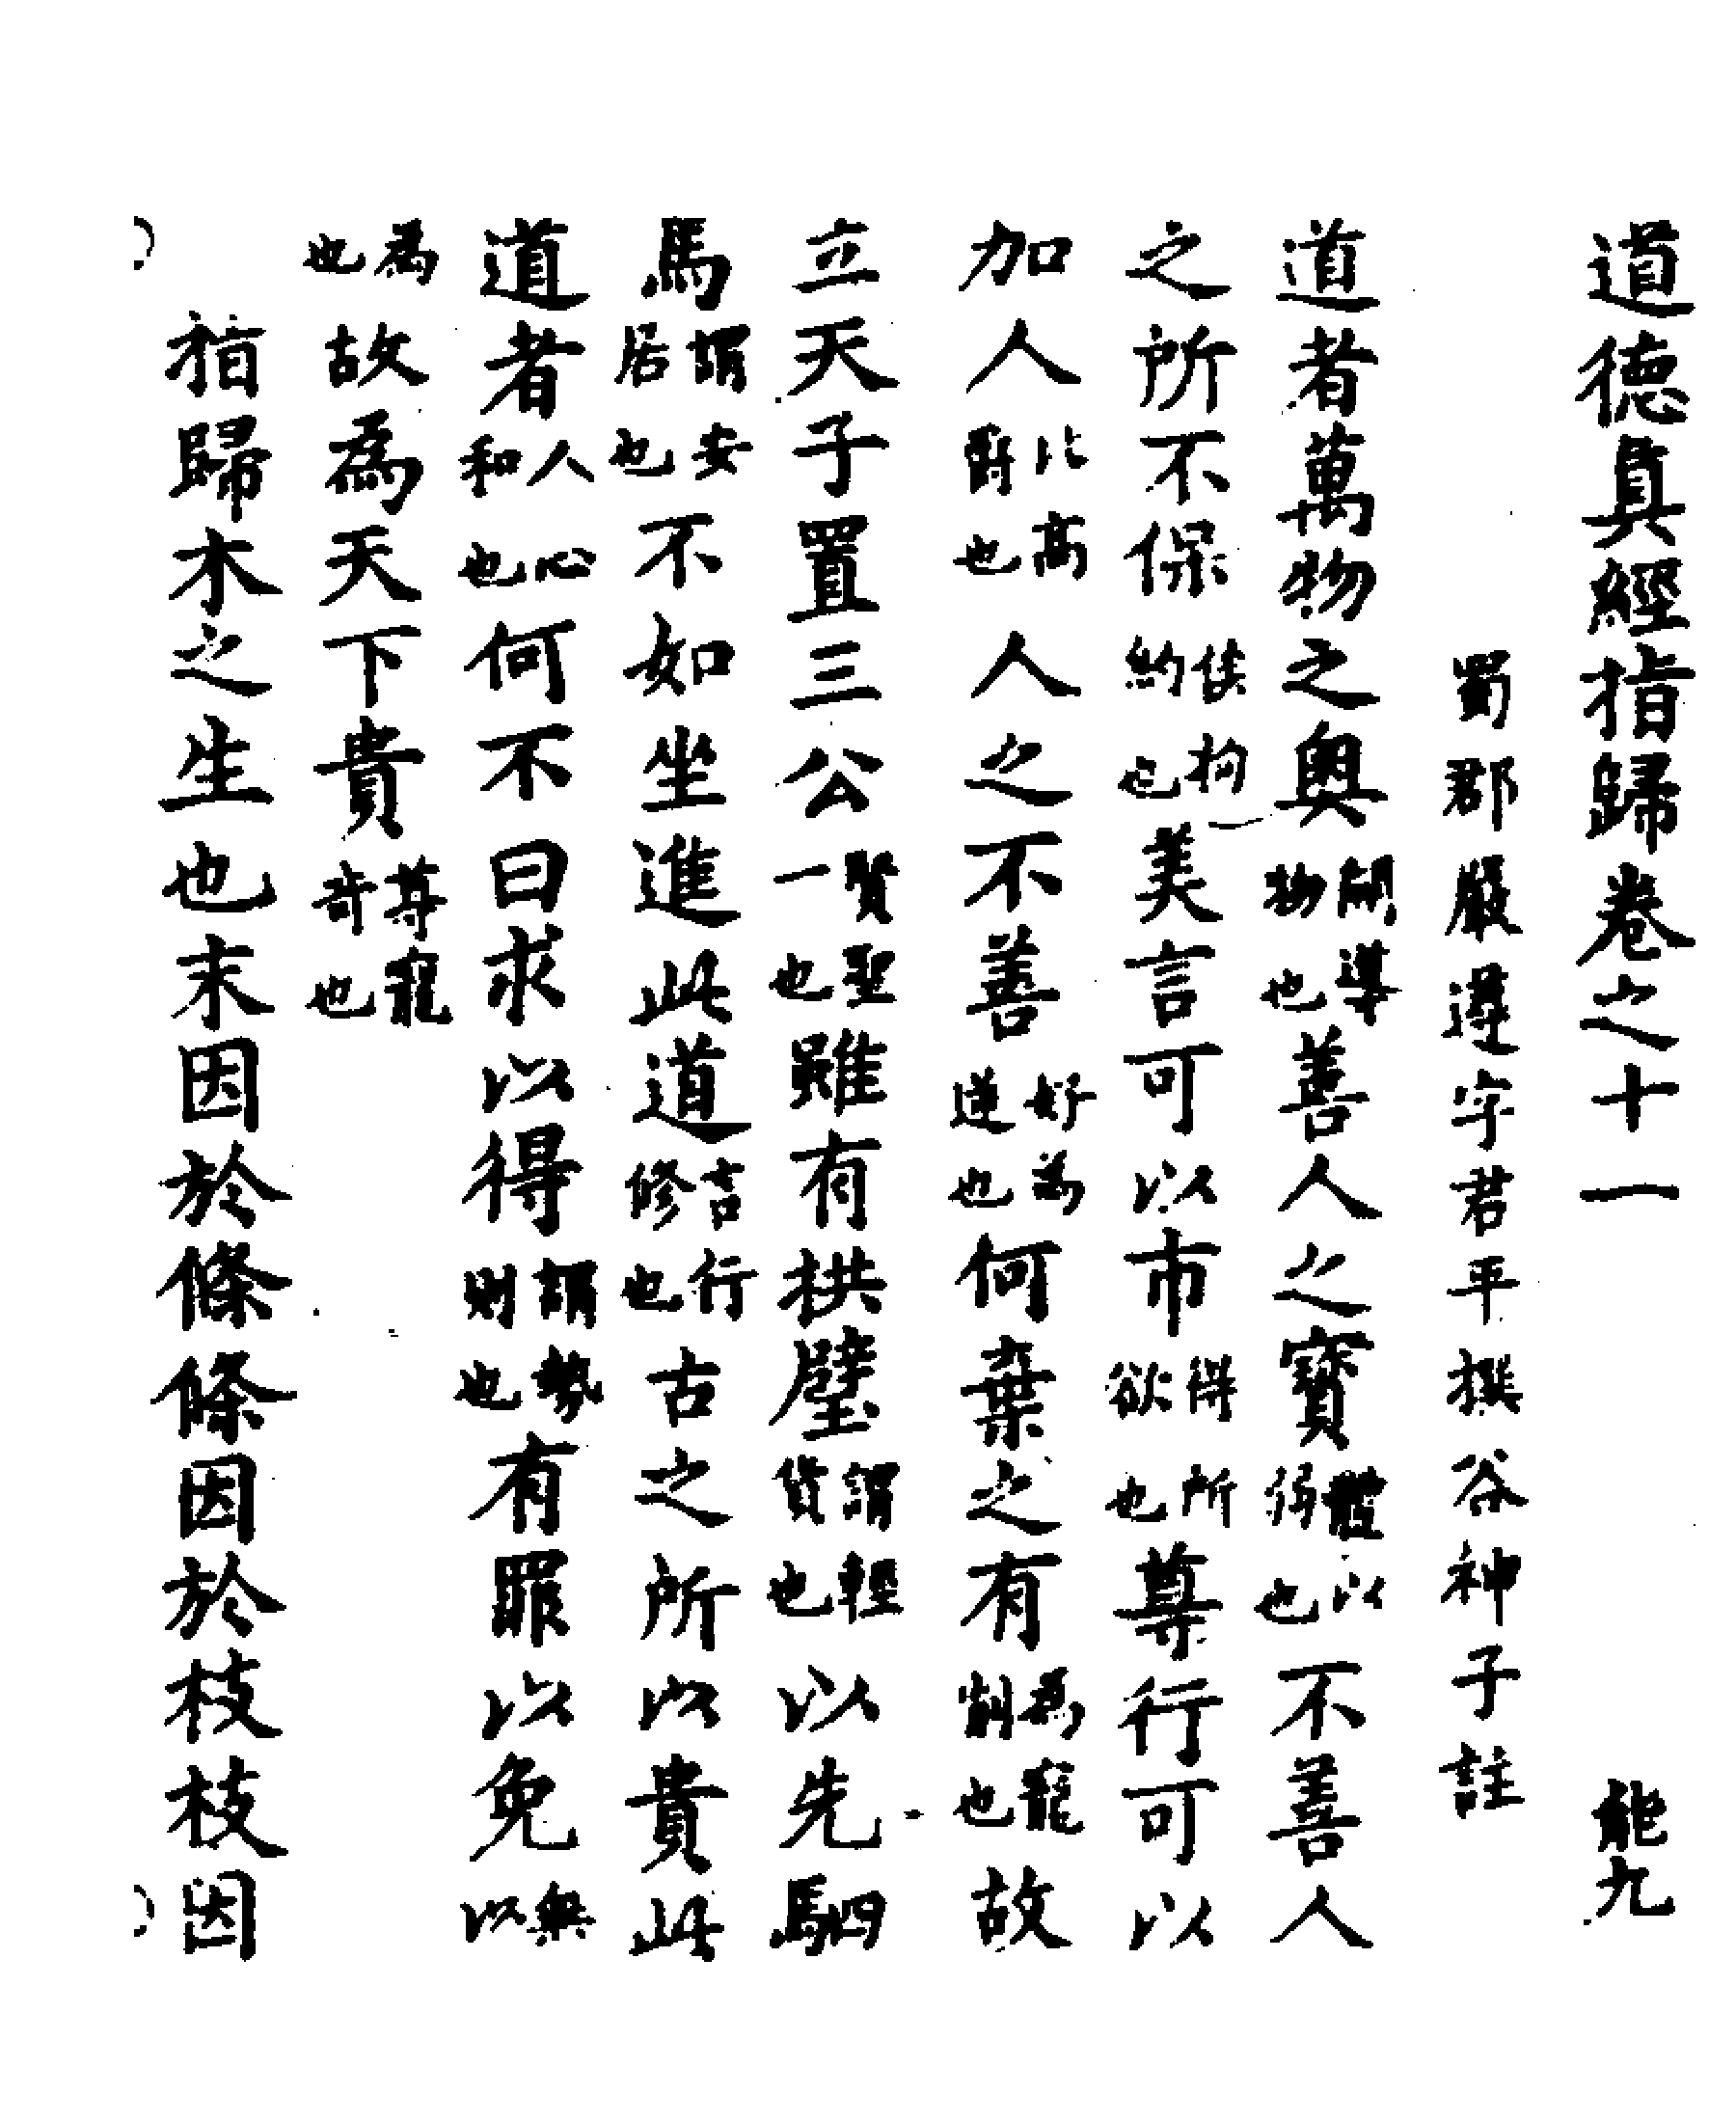 道德真經指歸卷之十一　能九
蜀郡嚴遵字君平撰谷神子註
道者萬物之奧開導物也善人之寶體以弱也不善人
之所不保拘約也美言可以市得所欲也尊行可以
加人比高爵也人之不善好為逆也何棄之有為寵制也故
立天子置三公賢聖一也雖有拱璧謂輕貨也以先駟
馬謂安居也不如坐進此道吉行修也古之所以貴此
道者人心和也何不曰求以得謂勢則也有罪以免無以
為也故為天下貴尊寵奇也
指歸木之生也末因於條條因於枝枝因